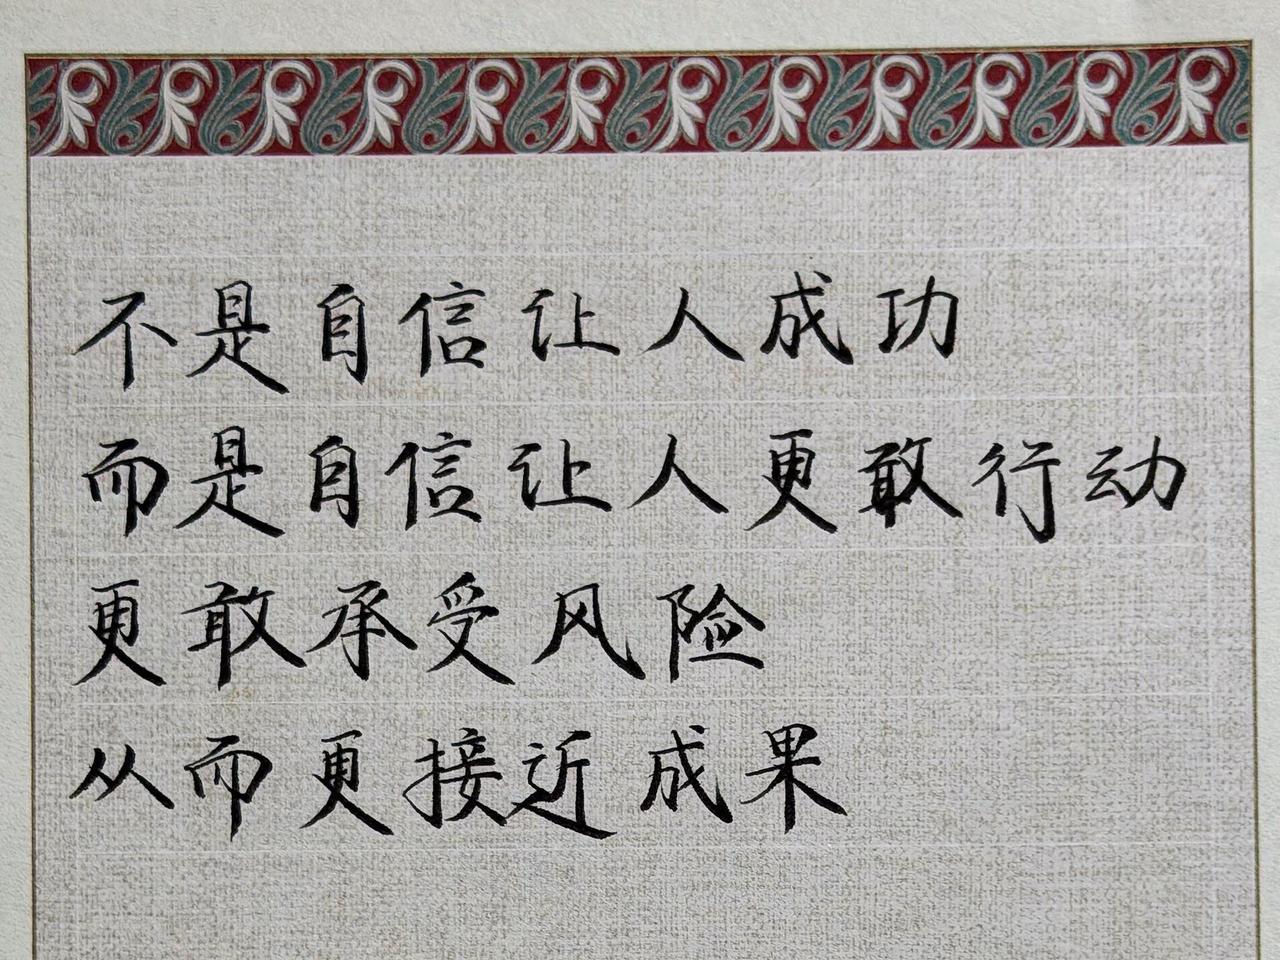 不是自信让人成功
而是自信让人更敢行动
更敢承受风险
从而更接近成果